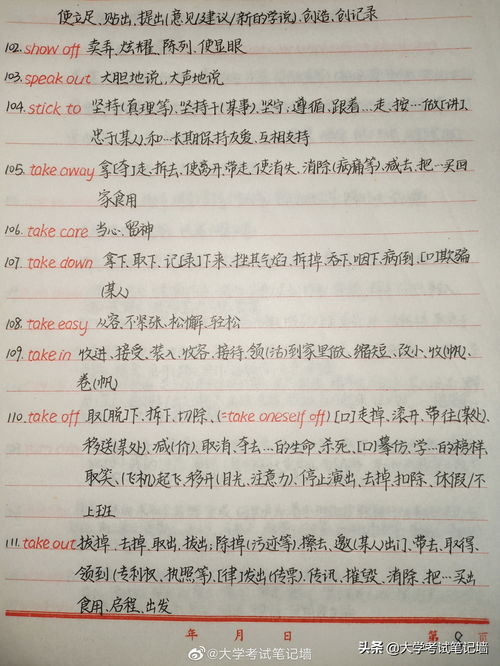 使立足、贴出、提出(意见/建议/新的学说)、创造、创记录
102. show off 卖弄、炫耀、陈列、使显眼
103. speak out 大胆地说、大声地说
104. stick to 坚持(真理等)、坚持干(某事)、坚守;遵循、跟着…走、按…做[讲]、
忠于(某人)、和…长期保持友爱、互相支持
105. take away 拿[夺]走、拆去、使离开、带走、使消失、消除(病痛等)、减去、把…买回
家食用
106. take care 当心、留神
107. take down 拿下、取下、记[录]下来、挫其气焰、拆掉、吞下、咽下、病(倒)、[口]欺骗
(某人)
108. take easy 从容、不紧张、松懈、轻松
109. take in 收进、接受、装入、收容、接待、领(活)到家里做、缩短、改小、收(帆)、
卷(帆)
110. take off 取[脱]下、拆下、切除、(=take oneself off) [口]走掉、滚开、带往(某处)、
移送(某处)、减(价)、取消、夺去…的生命、杀死、[口]摹仿、学…的榜样、
取笑、(飞机)起飞、移开(目光、注意力)、停止演出、去掉、扣除、休假/不
上班
111. take out 拔掉、去掉、取出、拔出、除掉(污迹等)、擦去、邀(某人)出门、带去、取得、
领到(专利权、执照等)、[律]发出(传票)、传讯、摧毁、消除、把…买出
食用、启程、出发
年 月 日 第 8 页
@大学考试笔记墙
头条 @大学考试笔记墙